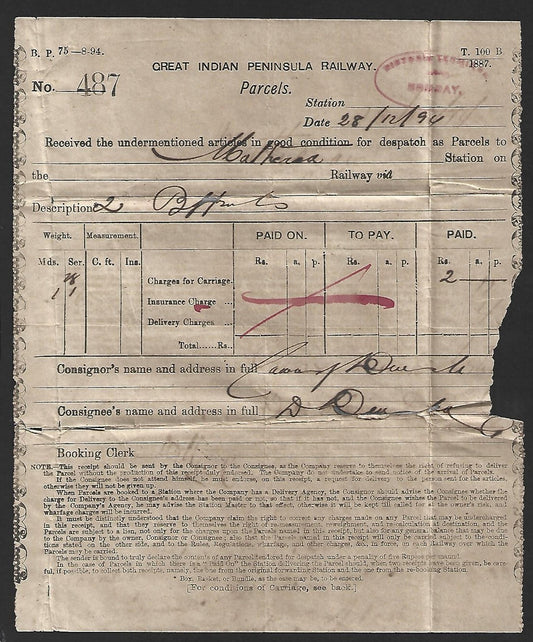 B. P. 75—8-94.
T. 100 B
1887.
GREAT INDIAN PENINSULA RAILWAY.
No. 487
Parcels.
BOMBAY.
Station
Date 28/12/94
Received the undermentioned articles in good condition for despatch as Parcels to
Station on
the Railway viâ
Description 2
Weight. Measurement. PAID ON. TO PAY. PAID.
Mds. Ser. C. ft. Ins. Rs. a. p. Rs. a. p. Rs. a. p.
Charges for Carriage. 2 —
Insurance Charge ...
Delivery Charges ...
Total......Rs.
Consignor's name and address in full
Consignee's name and address in full
Booking Clerk
NOTE.—This receipt should be sent by the Consignor to the Consignee, as the Company reserve to themselves the right of refusing to deliver
the Parcel without the production of this receipt duly endorsed. The Company do not undertake to send notice of the arrival of Parcels.
If the Consignee does not attend himself, he must endorse, on this receipt, a request for delivery to the person sent for the articles,
otherwise they will not be given up.
When Parcels are booked to a Station where the Company has a Delivery Agency, the Consignor should advise the Consignee whether the
charge for Delivery to the Consignee's address has been paid or not, as, if it has not, and the Consignee wishes the Parcel to be delivered
by the Company's Agency, he may advise the Station Master to that effect, otherwise it will be kept till called for at the owner's risk, and
wharfage charges will be incurred.
It must be distinctly understood that the Company claim the right to correct any charges made on any Parcel that may be undercharged
in this receipt, and that they reserve to themselves the right of re-measurement, reweighment, and recalculation at destination, and the
Parcels are subject to a lien, not only for the charges that may be due on the Parcels named in this receipt, but also for any general balance that may be due
to the Company by the owner, Consignor or Consignee; also that the Parcels named in this receipt will only be carried subject to the condi-
tions stated on the other side, and to the Rules, Regulations, wharfage, and other charges, &c., in force, on each Railway over which the
Parcels may be carried.
The sender is bound to truly declare the contents of any Parcel tendered for despatch under a penalty of five Rupees per maund.
In the case of Parcels in which there is a "Paid On" the Station delivering the Parcel should, when two receipts have been given, be care-
ful, if possible, to collect both receipts, namely, the one from the original forwarding Station and the one from the re-booking Station.
* Box, Basket, or Bundle, as the case may be, to be entered.
[For conditions of Carriage, see back.]